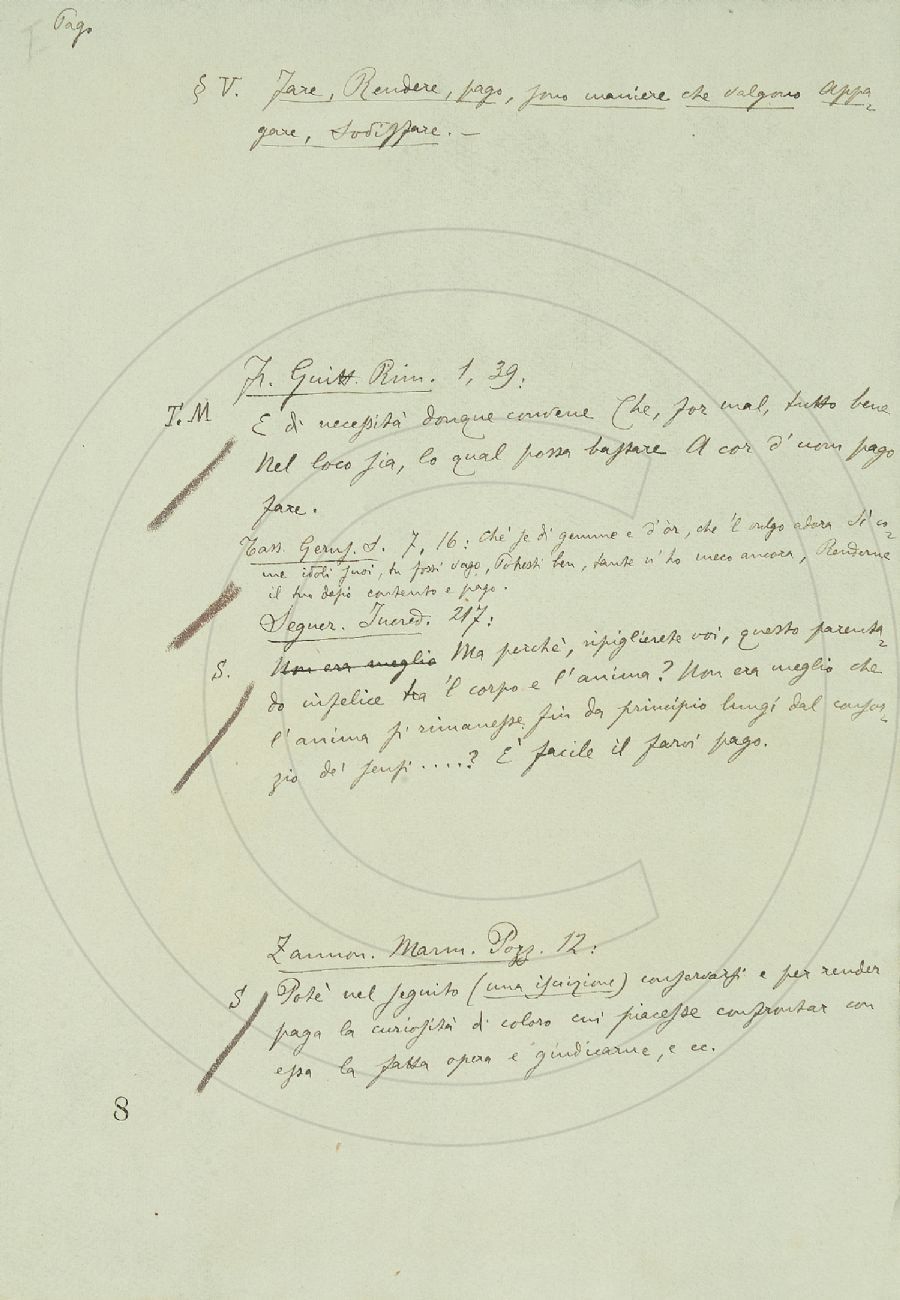 Pago
§ V. Fare, Rendere, pago, sono maniere che valgono Appa-
gare, Sodisfare. —
Fr. Guitt. Rim. 1, 39:
T.M
E di necessità donque convene Che, for mal, tutto bene
Nel loco sia, lo qual possa bastare A cor d'uom pago
fare.
Tass. Gerus. L. 7, 16: Chè se di gemme e d'òr, che 'l vulgo adora Sì co-
me idoli suoi, tu fossi vago, Potresti ben, tante n'ho meco ancora, Renderne
il tuo desìo contento e pago.
Segner. Incred. 217:
S. Non era meglio Ma perchè, ripiglierete voi, questo parenta-
do infelice tra 'l corpo e l'anima? Non era meglio che
l'anima si rimanesse fin da principio lungi dal consor-
zio de' sensi ....? È facile il farvi pago.
Zannon. Marm. Pozz. 12:
S Potè nel seguito (una iscrizione) conservarsi e per render
paga la curiosità di coloro cui piacesse confrontar con
essa la fatta opera e giudicarne, e ec.
8